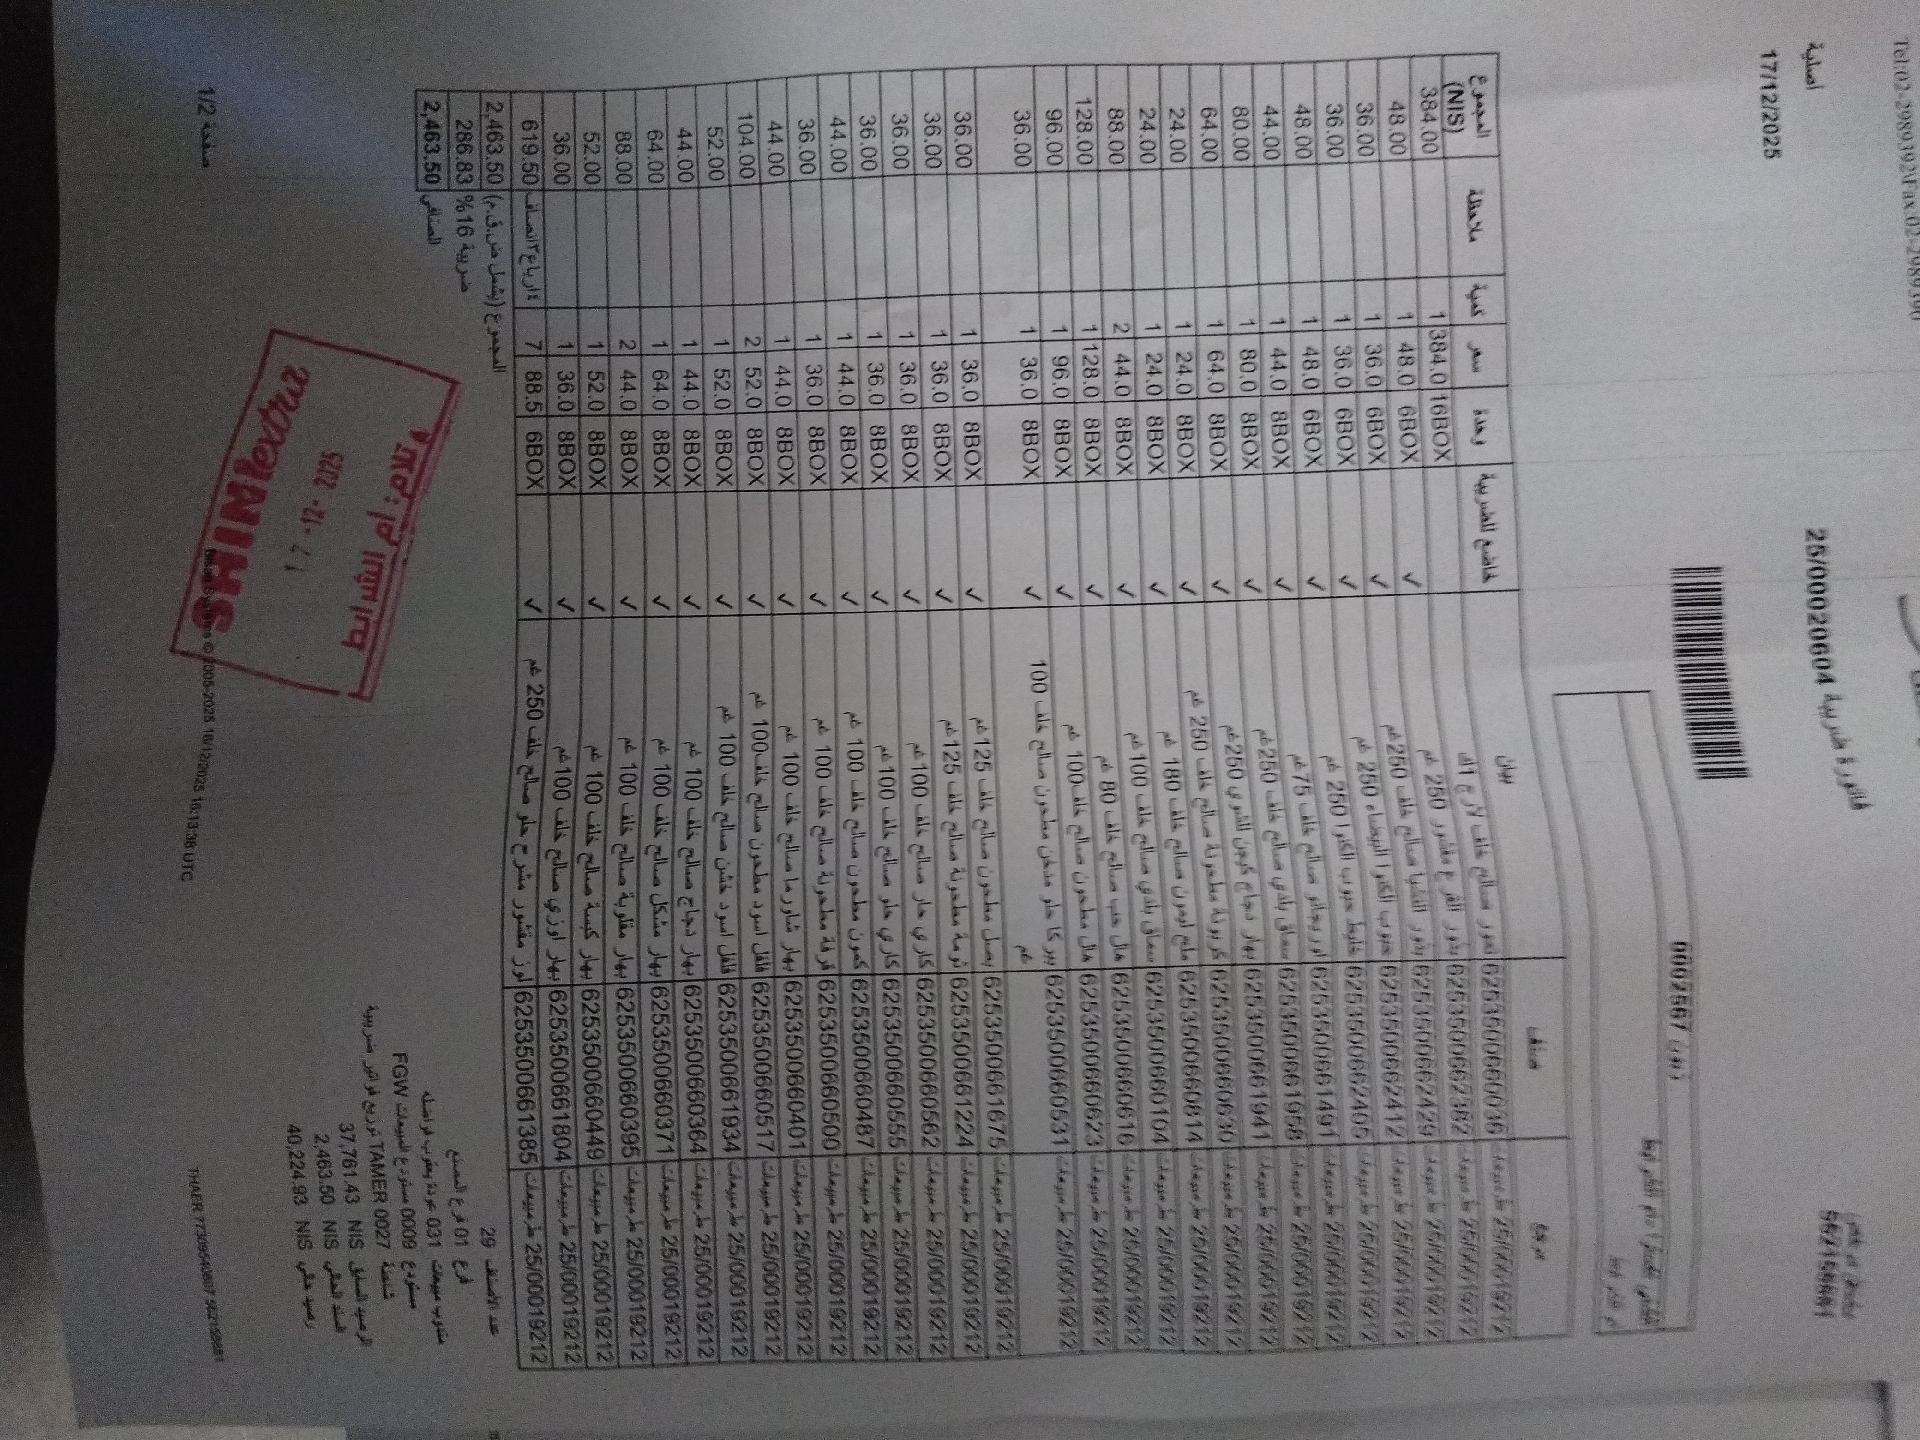 Tel:02-2989392\Fax.02-2989390
مشتغل مرخص
562156661
فاتورة ضريبية 25/00020604
أصلية
17/12/2025
0002567
مرجع صنف بيان خاضع للضريبة وحدة سعر كمية ملاحظة المجموع (NIS)
25/00019212 طر مبيعات 6253500660036 تمور صالح خلف لارج 1ك 16BOX 384.0 1 384.00
25/00019212 طر مبيعات 6253500662382 بذور القرع مقشور 250 غم ✓ 6BOX 48.0 1 48.00
25/00019212 طر مبيعات 6253500662429 بذور الشيا صالح خلف 250غم ✓ 6BOX 36.0 1 36.00
25/00019212 طر مبيعات 6253500662412 حبوب الكنوا البيضاء 250 غم ✓ 6BOX 36.0 1 36.00
25/00019212 طر مبيعات 6253500662405 خليط حبوب الكنوا 250 غم ✓ 6BOX 48.0 1 48.00
25/00019212 طر مبيعات 6253500661491 اوريجانو صالح خلف 75 غم ✓ 8BOX 44.0 1 44.00
25/00019212 طر مبيعات 6253500661958 سماق بلدي صالح خلف 250غم ✓ 8BOX 80.0 1 80.00
25/00019212 طر مبيعات 6253500661941 بهار دجاج كريون للشوي 250غم ✓ 8BOX 64.0 1 64.00
25/00019212 طر مبيعات 6253500660630 كربونة مطحونة صالح خلف 250 غم ✓ 8BOX 24.0 1 24.00
25/00019212 طر مبيعات 6253500660814 ملح ليمون صالح خلف 180 غم ✓ 8BOX 24.0 1 24.00
25/00019212 طر مبيعات 6253500660104 سماق بلدي صالح خلف 100غم ✓ 8BOX 44.0 2 88.00
25/00019212 طر مبيعات 6253500660616 هال حب صالح خلف 80 غم ✓ 8BOX 128.0 1 128.00
25/00019212 طر مبيعات 6253500660623 هال مطحون صالح خلف 100غم ✓ 8BOX 96.0 1 96.00
25/00019212 طر مبيعات 6253500660531 ببركا حلو مدخن مطحون صالح خلف 100 غم ✓ 8BOX 36.0 1 36.00
25/00019212 طر مبيعات 6253500661675 بصل مطحون صالح خلف 125 غم ✓ 8BOX 36.0 1 36.00
25/00019212 طر مبيعات 6253500661224 ثومة مطحونة صالح خلف 125 غم ✓ 8BOX 36.0 1 36.00
25/00019212 طر مبيعات 6253500660562 كاري حار صالح خلف 100غم ✓ 8BOX 36.0 1 36.00
25/00019212 طر مبيعات 6253500660555 كاري حلو صالح خلف 100غم ✓ 8BOX 36.0 1 36.00
25/00019212 طر مبيعات 6253500660487 كمون مطحون صالح خلف 100 غم ✓ 8BOX 44.0 1 44.00
25/00019212 طر مبيعات 6253500660500 قرفة مطحونة صالح خلف 100 غم ✓ 8BOX 36.0 1 36.00
25/00019212 طر مبيعات 6253500660401 بهار شاورما صالح خلف 100 غم ✓ 8BOX 44.0 1 44.00
25/00019212 طر مبيعات 6253500660517 فلفل اسود مطحون صالح خلف100 غم ✓ 8BOX 52.0 2 104.00
25/00019212 طر مبيعات 6253500661934 فلفل اسود خشن صالح خلف 100 غم ✓ 8BOX 52.0 1 52.00
25/00019212 طر مبيعات 6253500660364 بهار دجاج صالح خلف 100 غم ✓ 8BOX 44.0 1 44.00
25/00019212 طر مبيعات 6253500660371 بهار مشكل صالح خلف 100 غم ✓ 8BOX 64.0 1 64.00
25/00019212 طر مبيعات 6253500660395 بهار مقلوبة صالح خلف 100 غم ✓ 8BOX 44.0 2 88.00
25/00019212 طر مبيعات 6253500660449 بهار كبسة صالح خلف 100 غم ✓ 8BOX 52.0 1 52.00
25/00019212 طر مبيعات 6253500661804 بهار اوزي صالح خلف 100غم ✓ 8BOX 36.0 1 36.00
25/00019212 طر مبيعات 6253500661385 لوز مقشور مشرح حلو صالح خلف 250 غم ✓ 6BOX 88.5 7 ٤ارباع٣انصاف 619.50
المجموع (يشمل ض.ق.م) 2,463.50
ضريبة 16% 286.83
الصافي 2,463.50
عدد الأصناف 29
فرع 01 فرع المصنع
مندوب مبيعات 031
مستودع 0009 مستودع المبيعات FGW
شحنة 0027 TAMER توزيع فواتير ضريبية
الرصيد السابق NIS 37,761.43
السند الحالي NIS 2,463.50
رصيد حالي NIS 40,224.93
براهيما :ام
17-12-2025
SHIMlextra
2005-2025 16/12/2025 16:13:38 UTC
صفحة 1/2